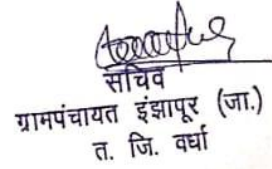 सचिव
ग्रामपंचायत इंझापूर (जा.)
त. जि. वर्धा